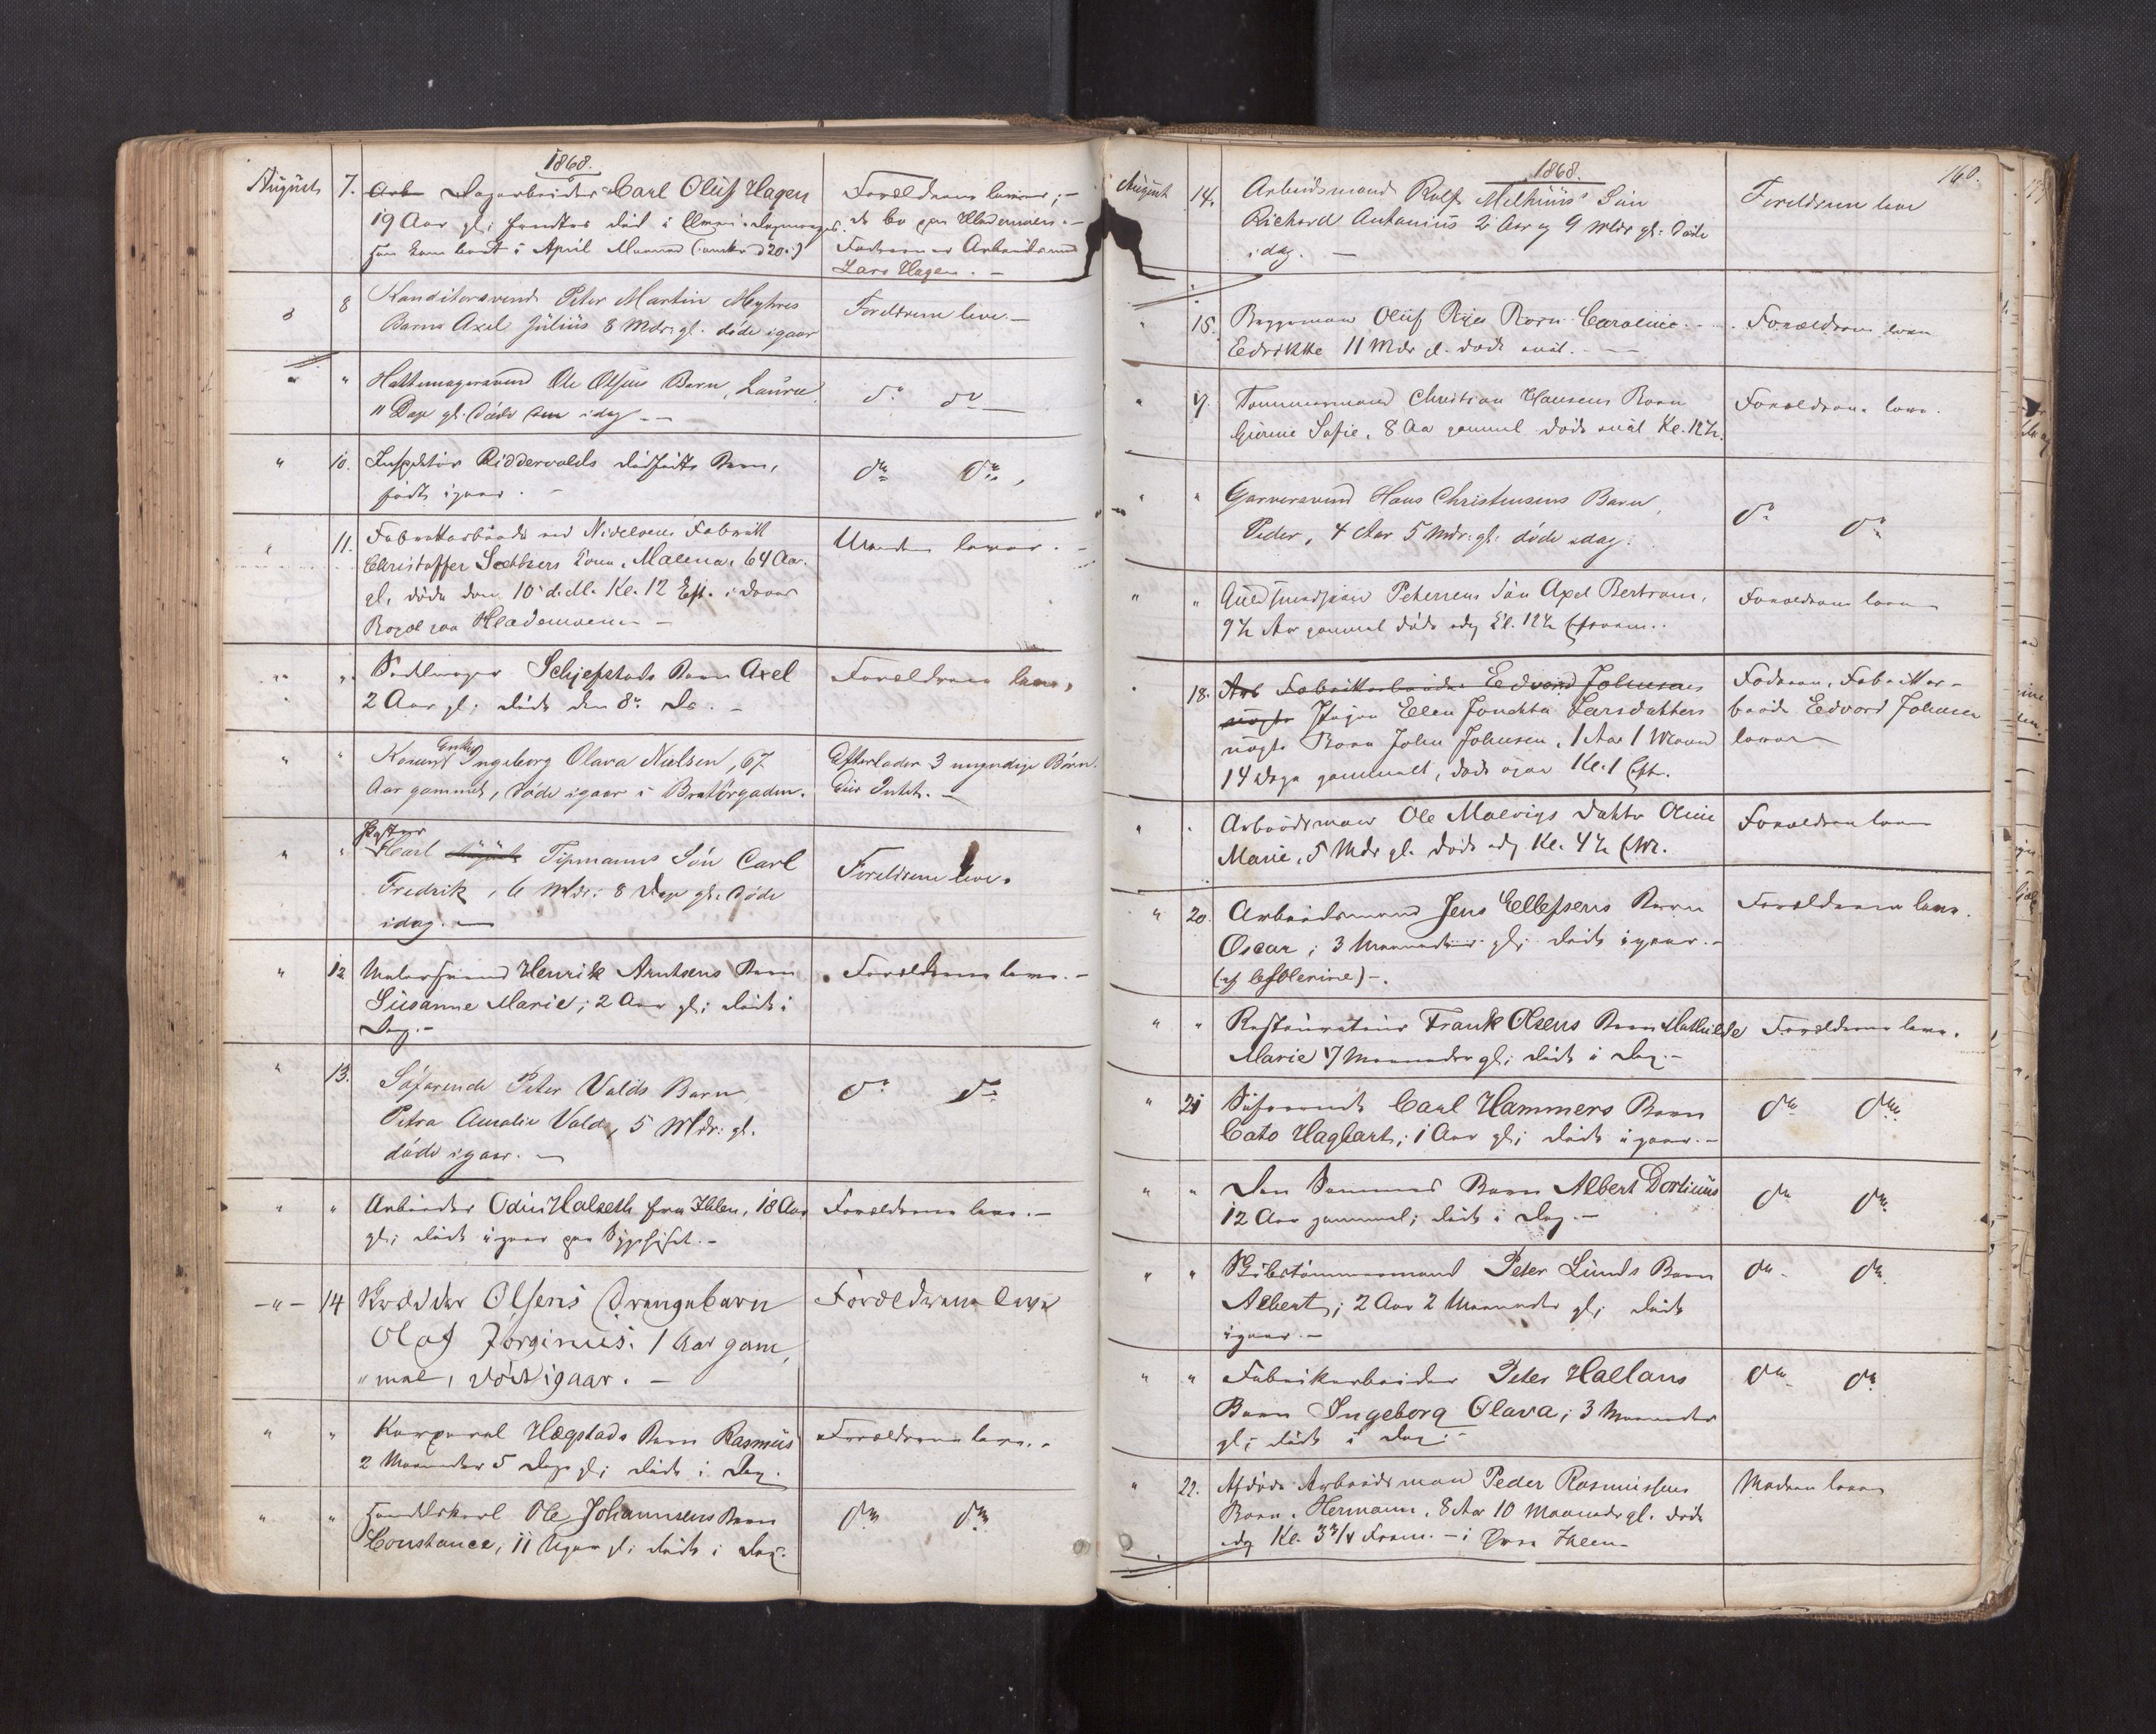 1868.
August 7. Arb Dagarbeider Carl Oluf Hagen
19 Aar gl; fundtes død i
han kom bort i April Maaned (omkr d 20.)
Forældrene lever; -
de bo paa Hlademoen. -
Faderen er Arbeidsmand
Lars Hagen. -
8 Konditorsvend Peter Martin Meyhres
Barn Axel Julius 8 Mdr. gl. døde igaar
Forældrene leve. -
" " Hattemagersvend Ole Olsens Barn, Laura,
11 Dage gl. døde idag. -
do do -
" 10. Inspektør Riddervolds dødfødte Barn,
født igaar. -
do do,
" 11. Fabrikarbeider ved Nidelvens Fabrikk
Christoffer Kone, Malena, 64 Aar.
gl, døde den 10 d. M. Kl. 12 Eft. i
paa Hlademoen -
Manden lever. -
" " Sadlmager Schjefstads Barn Axel
2 Aar gl; døde den 8de Ds. -
Forældrene leve,
" " Enke Ingeborg Olava Nielsen, 67
Aar gammel, døde igaar i Bratørgaden.
Efterlader 3 umyndige Børn.
Eier Intet. -
" " Carl Tipmanns Søn Carl
Fredrik, 6 Mdr: 8 Dage gl. døde
idag. -
Forældrene leve.
" 12. Malersvend Henrik Arntsens Barn
Susanne Marie; 2 Aar gl; døde i
Dag. -
Forældrene leve. -
" 13. Søfarende Peter Valds Barn,
Petra Amalie Vald, 5 Mdr: gl.
døde igaar. -
do do
" " Arbeider Odin Halseth fra Ihlen, 18 Aar
gl; døde igaar paa Sygehuset. -
Forældrene leve. -
- " - 14 Skrædder Olsens Drengebarn
Olaf Jørginus. 1 Aar gam,
" mal, død igaar. -
Forældrene leve
" " Korporal Hægstads Barn Rasmus
2 Maaneder 5 Dage gl; døde i Dag.
Forældrene leve. -
" " Handelskarl Ole Johannsens Barn
Constance, 11 Uger gl; døde i Dag.
do do
1868.
160.
August 14. Arbeidsmand Rolf Melhuus' Søn
Richard Antonius 2 Aar og 9 Mdr gl: døde
idag. -
Foreldrene leve
" 15. Oluf Ryes Barn Caroline
Edrikke 11 Mdr gl. døde
Forældrene leve
" 17. Tømmermand Christian Hansens Barn
Sofie, 8 Aa gammel døde Kl. 12½.
Forældrene leve.
" " Garversvend Hans Christensens Barn,
Peder, 4 Aar 5 Mdr: gl: døde idag.
do do
" " Guldsmedsvend Petersens Søn Axel Bertram,
9½ Aar gammel døde idag Kl. 12½
Forældrene leve
" 18. Arb Fabrikkarbeider Edvard Johnsens
uægte Pigen Ellen Larsdatters
uægte Barn John Johnsen, 1 Aar 1 Maaned
14 Dage gammelt, døde igaar Kl. 1 Eft.
Faderen, Fabrikkar-
beider Edvard Johnsen
lever
" " Arbeidsmand Ole Malvigs Datter Oline
Marie, 5 Mdr gl. døde idag Kl. 4½ Eftr.
Forældrene leve
" 20. Arbeidsmand Jens Ellefsens Barn
Oscar; 3 Maaneder gl; døde igaar. -
(af Cholerine) -.
Forældrene leve.
" " Restauratør Frank Olsens Barn Mathilde
Marie 7 Maaneder gl; døde i Dag. -
Forældrene leve.
" 21 Søfarende Carl Hammers Barn
Cato Hagbart; 1 Aar gl; døde igaar. -
do do
" " Den Sammes Barn Albert Dortinius
12 Aar gammel; døde i Dag. -
do do
" " Skibstømmermand Peter Lunds Barn
Albert; 2 Aar 2 Maaneder gl; døde
igaar. -
do do
" " Fabrikarbeider Peter Hallans
Barn Ingeborg Olava; 3 Maaneder
gl; døde i Dag. -
do do
" 22. Afdøde Arbeidsmand Peder Rasmussens
Barn, Hermann, 8 Aar 10 Maaneder gl. døde
idag Kl. 3¾ Form. - i Øvre Ihlen -
Moderen lever